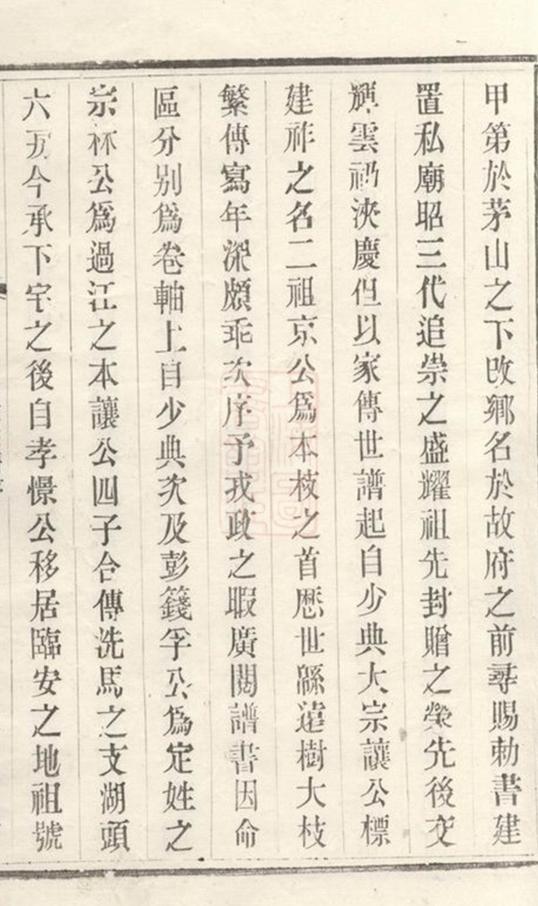 甲第於茅山之下改鄉名於故府之前尋賜勅書建
置私廟昭三代追崇之盛耀祖先封贈之榮先後交
輝雲礽浹慶但以家傳世譜起自少典大宗讓公標
建祚之名二祖京公爲本枝之首歷世緜遠樹大枝
繁傳寫年深頗乖次序予戎政之暇廣閱譜書因命
區分別爲卷軸上自少典次及彭籛孚公爲定姓之
宗林公爲過江之本讓公四子合傳洗馬之支湖頭
六房今承下宅之後自孝憬公移居臨安之地祖號